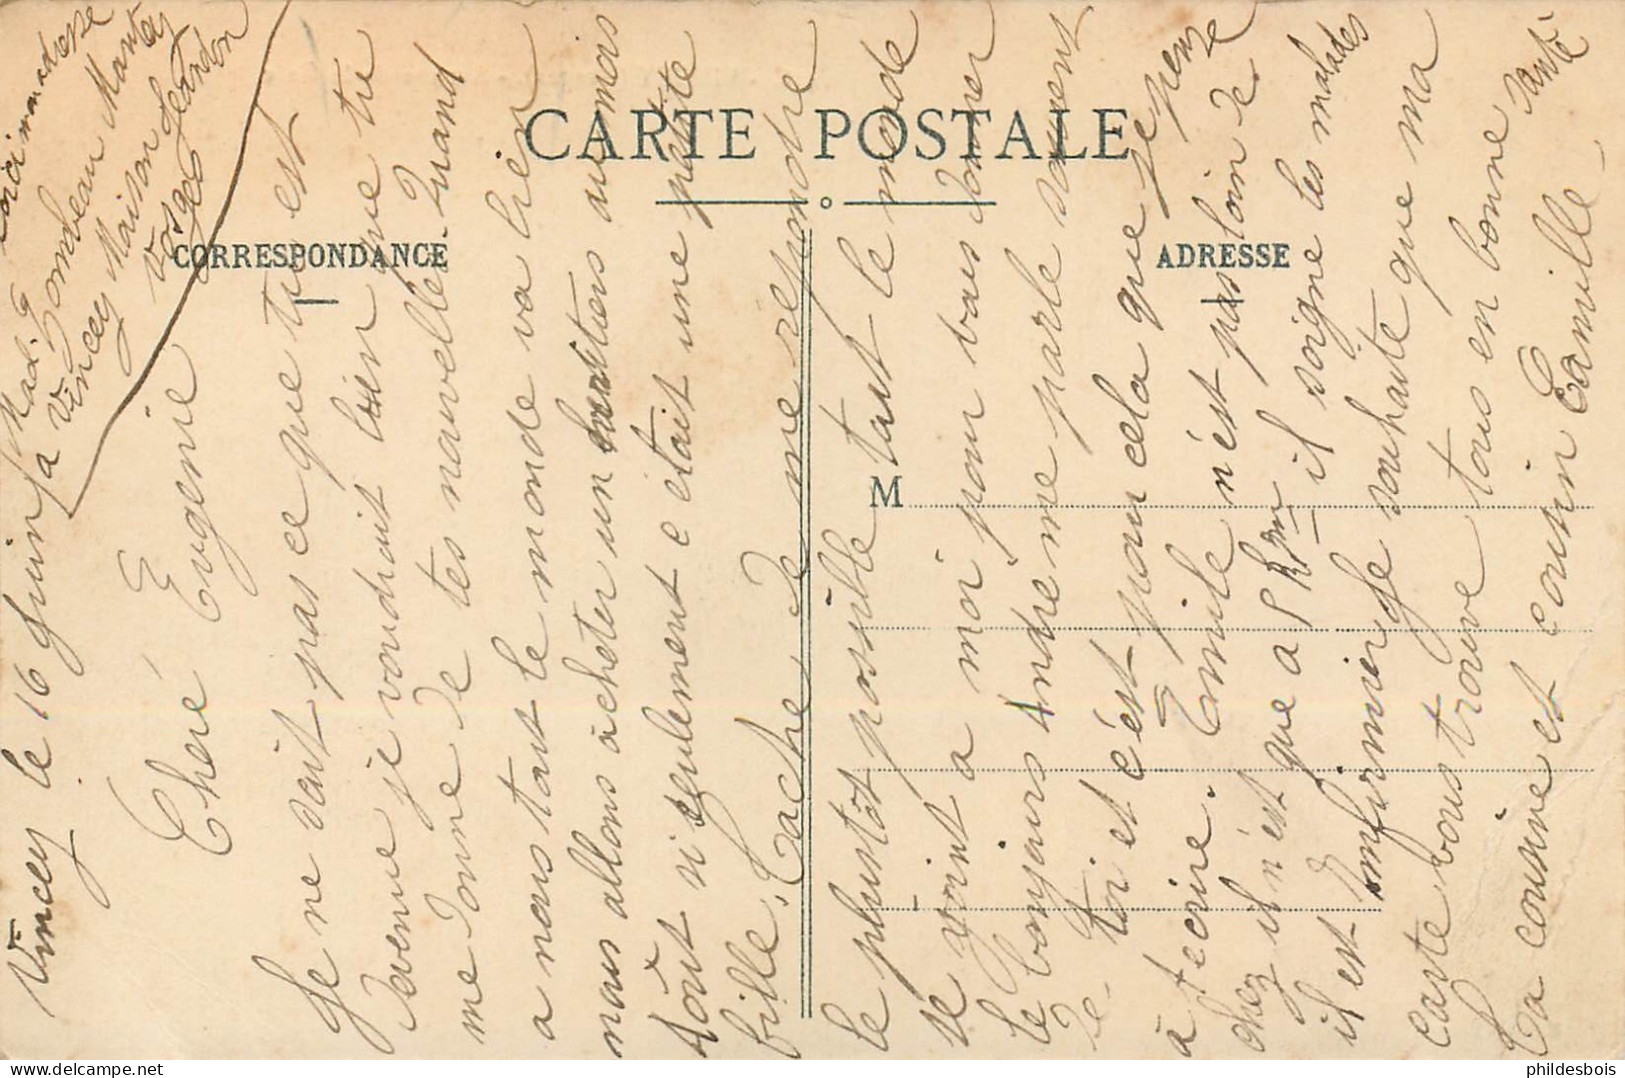 Voici mon adresse
Mad. G Gombeau Mantey
a Vincey Maison Jeandon
Vosges
Vincey le 16 Juin
Cheré Eugenie
Je ne sait pas ce que tu est
devenue je voudrait bien que tu
me donne de tes nouvelle. Quand
a nous tout le monde va bien
nous allons acheter un heritiers au mois
tout si seulement c etait une petite
fille. Tache de me repondre
le plutôt possible tout le monde
se joint a moi pour vous doner
le bonjours Andre me parle souvent
de toi et c'ést pour cela que je pense
à t ecrire. Emile n'ést pas loin de
chez il n'ést que a 8 km il soigne les malades
il est Infirmier Je souhaite que ma
carte vous trouve tous en bonne santé
Ta cousine et cousin Camille
CARTE POSTALE
CORRESPONDANCE
ADRESSE
M
phildesbois